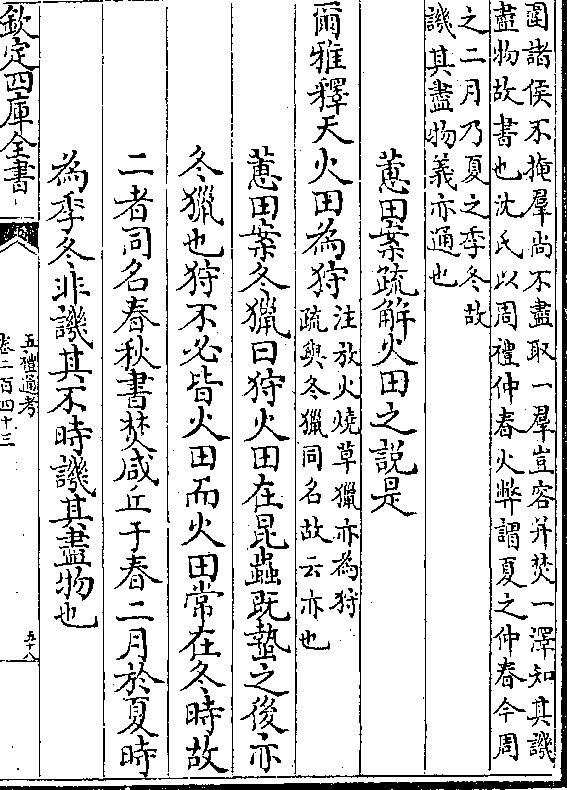 圍諸侯不掩羣尚不盡取一羣豈容并焚一澤知其譏
盡物故書也沈氏以周禮仲春火弊謂夏之仲春今周
之二月乃夏之季冬故
譏其盡物義亦通也
蕙田案疏解火田之說是
爾雅釋天火田為狩
注放火燒草獵亦為狩
疏與冬獵同名故云亦也
蕙田案冬獵曰狩火田在昆蟲既蟄之後亦
冬獵也狩不必皆火田而火田常在冬時故
二者同名春秋書焚咸丘于春二月於夏時
為季冬非譏其不時譏其盡物也
欽定四庫全書
五禮通考
卷二百四十三
五十八